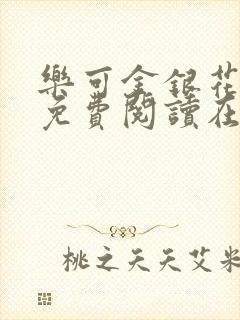 樂可金銀花
免費閱讀在
桃之夭夭艾米